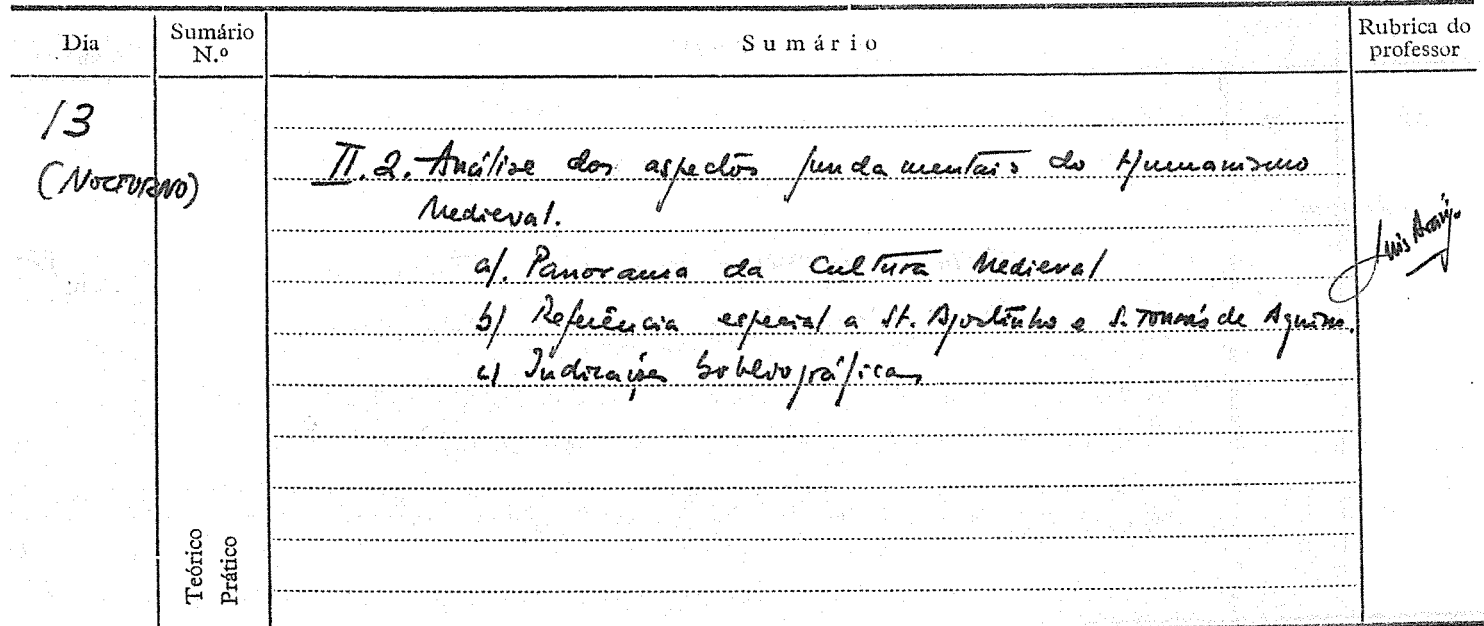 Dia
Sumário N.º
Sumário
Rubrica do professor
13
(NOCTURNO)
II. 2. Análise dos aspectos fundamentais do Humanismo
Medieval.
a). Panorama da Cultura Medieval
b) Referência especial a St. Agostinho e S. Tomás de Aquino.
c) Indicações bibliográficas
Luís Araújo
Teórico
Prático